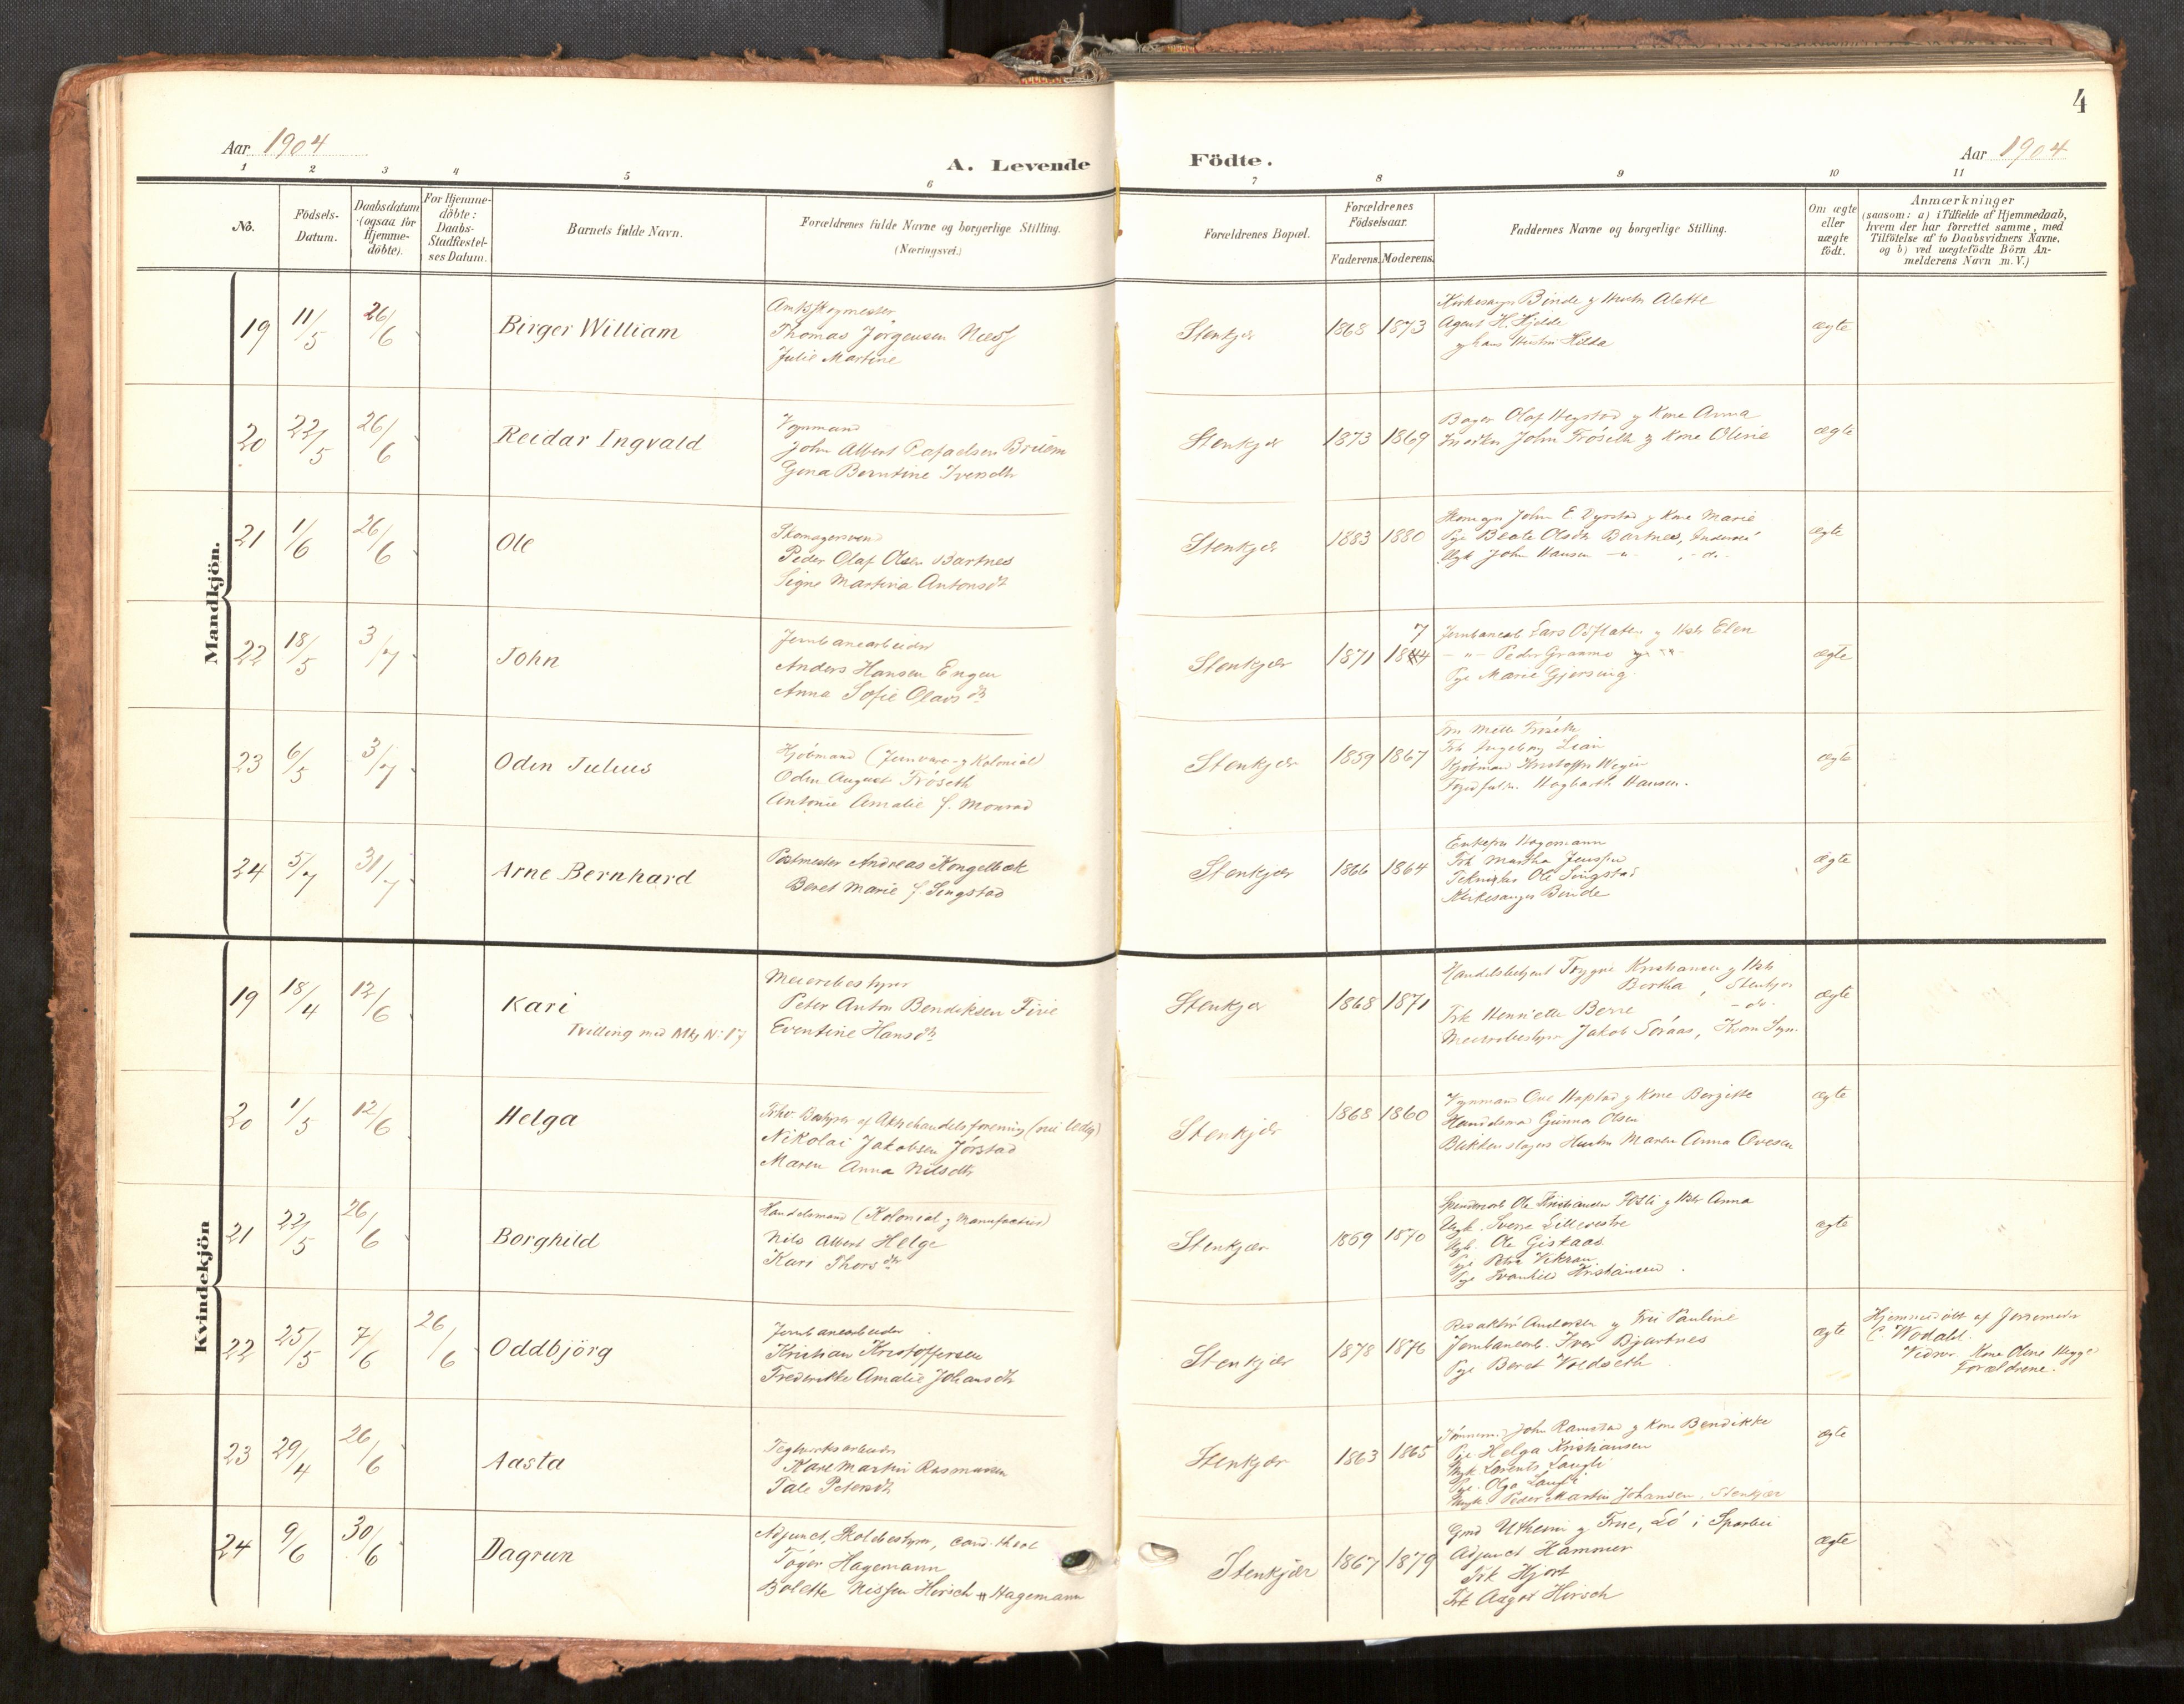 4
Aar 1904
A. Levende
Födte.
Aar 1904
1 2 3 4 5 6 7 8 9 10 11
No.
Födsels-
Datum.
Daabsdatum
(ogsaa för
Hjemme-
döbte).
For Hjemme-
döbte:
Daabs-
Stadfæstel-
ses Datum.
Barnets fulde Navn.
Forældrenes fulde Navne og borgerlige Stilling.
(Næringsvei.)
Forældrenes Bopæl.
Forældrenes
Födselsaar.
Faderens. Moderens.
Faddernes Navne og borgerlige Stilling.
Om ægte
eller
uægte
födt.
Anmærkninger
(saasom: a) i Tilfælde af Hjemmedaab,
hvem der har forrettet samme, med
Tilföielse af to Daabsvidners Navne,
og b) ved uægtefödte Börn An-
melderens Navn m. V.)
Mandkjön.
19 11/5 26/6 Birger William
Thomas Jørgensen
Julie Martine
Stenkjer 1868 1873
Kirkesanger Binde g Hustr Alette
Agent H. Hjelde
g hans Hustru Hilda
ægte
20 22/5 26/6 Reidar Ingvald
Vognmand
John Albert
Gina Berntine
Stenkjer 1873 1869
Bager Olaf Hegstad g Kone Anna
John Fröseth g Kone Oline
ægte
21 1/6 26/6 Ole
Skomagersvend
Peder Olaf Olsen Bartnes
Signe Martina Antonsdt
Stenkjer 1883 1880
John E. Dyrstad g Kone Marie
Pge Beate Olsdtr Bartnes, Inderöi
Ugk John Hansen -"- , - do -
ægte
22 18/5 3/7 John
Jernbanearbeider
Anders Hansen Engen
Anna Sofie Olavsdtr
Stenkjær 1871 1844
7
Jernbanearb Lars Oxflaten g Hstr Elen
-"- Peder Graamo g -"-
Pge Marie Gjersing
ægte
23 6/5 3/7 Oden Julius
Kjöbmand (Jernvare- g Kolonial)
Oden August Fröseth
Antonie Amalie f. Monrad
Stenkjær 1859 1867
Fru Mette Fröseth
Frk Ingeborg Lian
Kjöbman Kristoffer
Hagbarth Hansen.
ægte
24 5/7 31/7 Arne Bernhard
Postmester Andreas Kongelbæk
Beret Marie f. Singstad
Stenkjær 1866 1864
Enkefru Hagemann
Frk Martha Jenssen
Tekniker Ole Singstad
Kirkesanger Binde
ægte
Kvindekjön
19 18/4 12/6 Kari
Tvilling med Mkj N: 17
Meieribestyrer
Peter Anton Bendiksen
Eventine Hansdtr
Stenkjer 1868 1871
Handelsbetjent Trygve Kristiansen g Hstr
Bertha, Stenkjer
Frk Henriette Berre - do -
Meieribestyrer Jakob Soraas, Kvam
ægte
20 1/5 12/6 Helga
Frhv. Bestyrer af Aktiehandelsforening (nu ledig)
Nikolai Jakobsen Jørstad
Maren Anna Nilsdtr
Stenkjer 1868 1860
Vognmand Ove Hopstad g Kone Bergitte
Gunnar Olsen
Blikkenslagers Hustru Maren Anna Ovesen
ægte
21 22/5 26/6 Borghild
Handelsmand (Kolonial g Manufactur)
Nils Albert Helge
Kari Thorsdtr
Stenkjær 1869 1870
Ole Kristiansen g Hstr Anna
Ugk. Sverre Lillevestre
Ugk. Ole Gistaas
Pge Petra Vekran
Pge Kristiansen.
ægte
22 25/5 7/6 26/6 Oddbjörg
Jernbanearbeider
Kristian Kristoffersen
Frederikke Amalie Johansdtr
Stenkjær 1878 1876
Redaktör Andersen g Frue Pauline
Jernbanearb. Iver Bjartnes
Pge Beret Voldseth
ægte
Hjemmedöbt af Jordemoder
C. Wodahl.
Vidner. Kone Oline Hegge
Forældrene.
23 29/4 26/6 Aasta
Teglverksarbeider
Karl Martin Rasmussen
Tale Petersdtr
Stenkjær 1863 1865
John Ramstad g Kone Bendikke
Pge Helga Kristiansen
Ungk. Lorents Langli
Pge. Olga Langli
Ungk. Peder Martin Johansen, Stenkjær
ægte
24 9/6 30/6 Dagrun
Adjunct, Skolebestyrer, cand. theol
Töger Hagemann
Bolette Nissen Hirsch Hagemann
Stenkjær 1867 1879
Utheim g Frue, Lö i Sparbu
Adjunct Hammer
Frk Hjort
Frk Aagot Hirsch
ægte